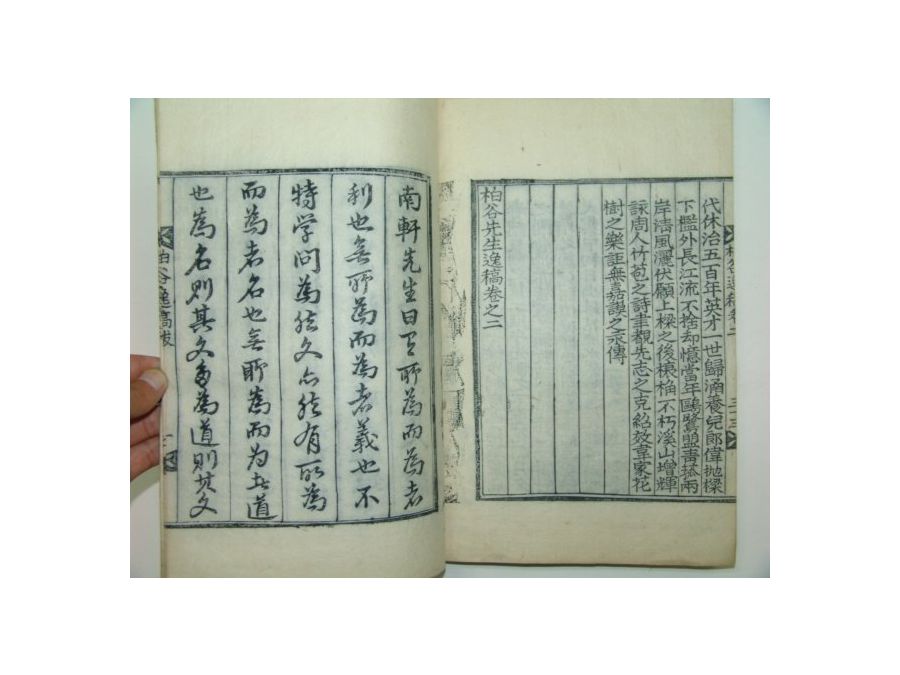 代休治五百年英才一世歸涵養兒郎偉抛樑
下檻外長江流不捨却憶當年鷗鷺盟靑菰兩
岸淸風灑伏願上樑之後榱桷不朽溪山增輝
詠周人竹苞之詩聿覩先志之克紹效韋家花
樹之樂詎無嘉謨之永傳
柏谷先生逸稿卷之二
南軒先生曰有所爲而爲者
利也無所爲而爲者義也不
特学問爲然文亦然有所爲
而爲者名也無所爲而为者道
也爲名則其文爲道則其文
柏谷逸高跋